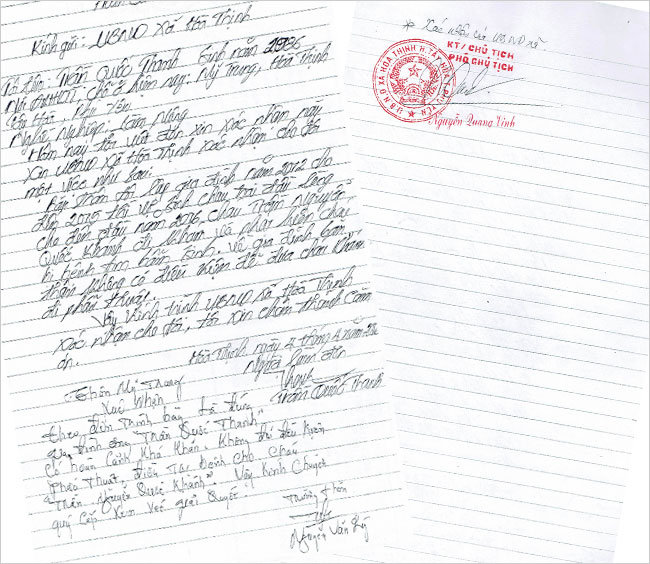 Kính gửi: UBND xã Hoà Thịnh
Tôi tên: Trần Quốc Thanh Sinh năm 1986
Chổ ở hiện nay: Mỹ Trung, Hoà Thịnh
Tây Hoà, Phú Yên
Nghề nghiệp: Làm Nông
Hôm nay tôi viết đơn xin xác nhận này
xin UBND xã Hoà Thịnh xác nhận cho tôi
một việc như sau:
Bản thân tôi lập gia đình năm 2012 cho
đến 2015 tôi vợ sinh cháu trai đầu lòng
cho đến đầu năm 2016 cháu Trần Nguyễn
Quốc Khánh đi khám và phát hiện cháu
bị bệnh tim bẩm sinh. Vì gia đình
không có điều kiện để đưa cháu Khánh
đi phẩu thuật.
Vậy kính trình UBND xã Hoà Thịnh
xác nhận cho tôi, tôi xin chân thành cảm
ơn.
Hoà Thịnh ngày 4 tháng 4 năm
Người làm đơn
Thanh
Trần Quốc Thanh
Thôn Mỹ Trung
Xác Nhận
Theo đơn trình bày là đúng
Gia đình ông "Trần Quốc Thanh"
có hoàn cảnh Khó Khăn. Không đủ điều kiện
Phẩu Thuật, điều trị bệnh cho cháu
"Trần Nguyễn Quốc Khánh". Vậy Kính Chuyển
quý Cấp Xem Xét giải quyết.
Trưởng thôn
Nguyễn Văn
* Xác nhận của UBND xã
KT/CHỦ TỊCH
PHÓ CHỦ TỊCH
U.B.N.D XÃ HÒA THỊNH H. TÂY HÒA T. PHÚ YÊN
Nguyễn Quang Vinh